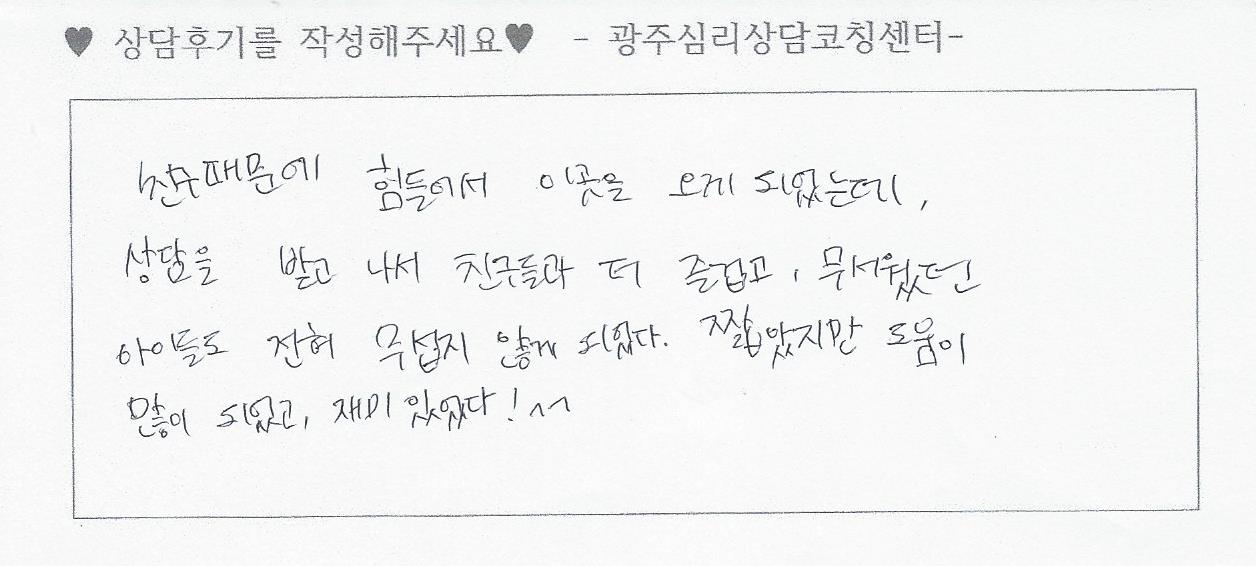 ♥ 상담후기를 작성해주세요♥ - 광주심리상담코칭센터-
친구때문에 힘들어서 이곳을 오게 되었는데,
상담을 받고 나서 친구들과 더 즐겁고, 무서웠던
아이들도 전혀 무섭지 않게 되었다. 짧았지만 도움이
많이 되었고, 재미있었다! ^^